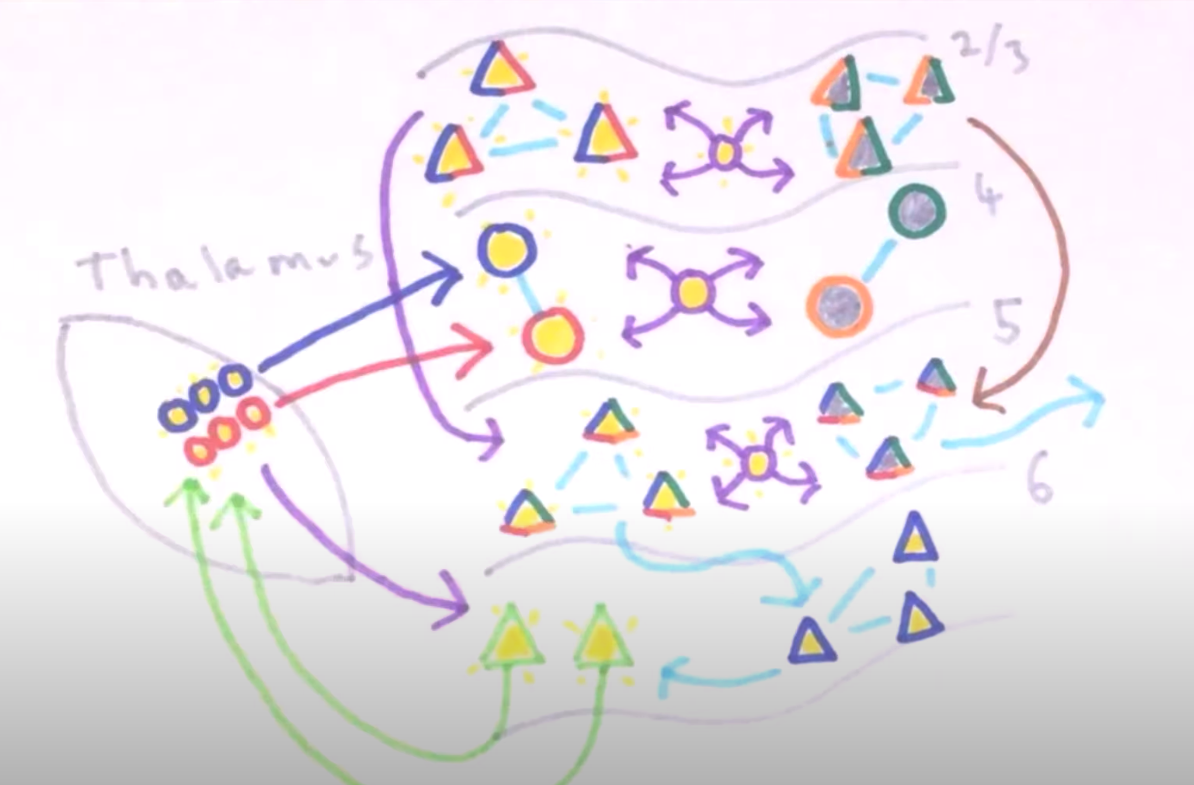 2/3
4
Thalamus
5
6